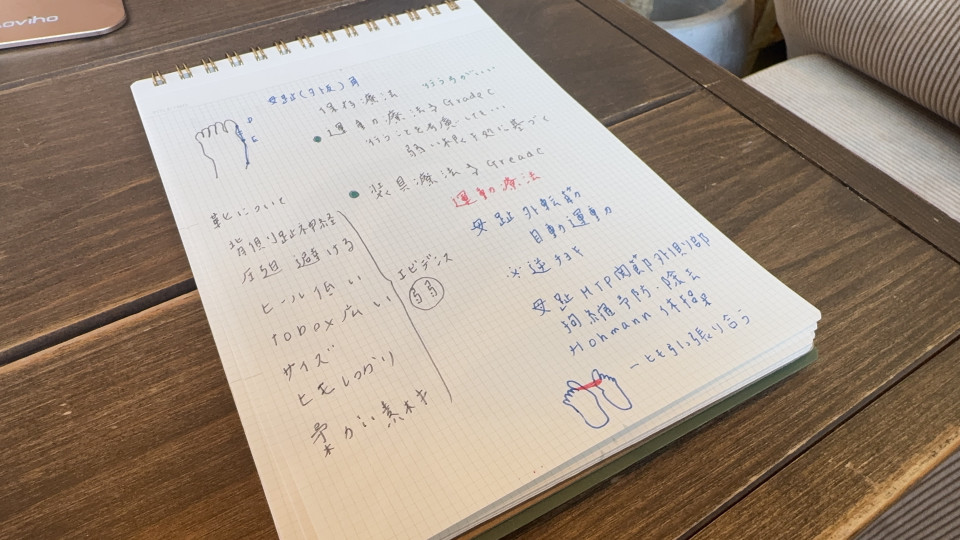 oviho
母趾(外反)角
保存療法 行うもが....
運動療法 Grade C
行うことを考慮しても...
弱い根拠に基づく
装具療法 Grade C
靴について
背側趾神経
圧迫 避ける
ヒール低い
toe box 広い
サイズ
ヒモしっかり
柔かい素材
エビデンス
弱弱
運動療法
母趾外転筋
自動運動
※逆
母趾MTP関節外側部
拘縮予防・除去
Hohmann体操
引っ張り合う